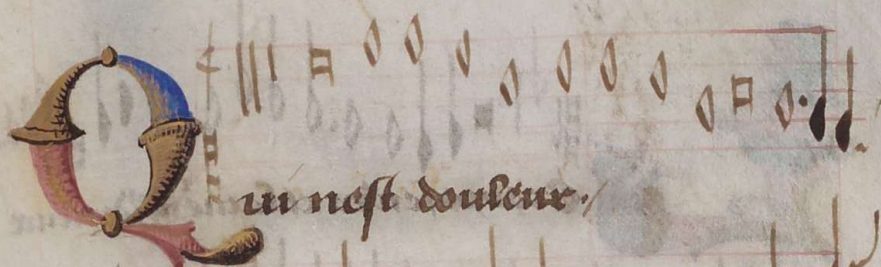 Qui nest douleur.